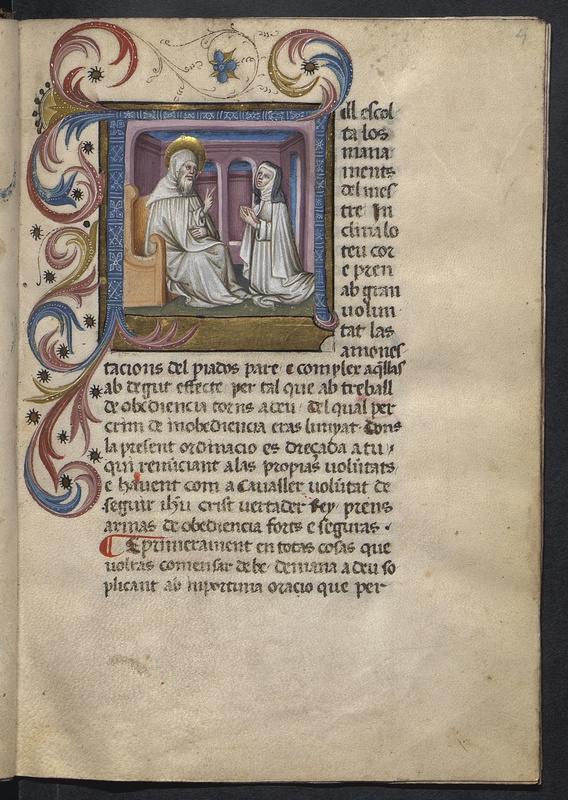 ill escol
ta los
mana
ments
del mes
tre In
clina lo
teu cor
e pren
ab gran
volun
tat las
amones
tacions del piados pare e complex aq̄llas
ab degut effecte per tal que ab treball
de obediencia torns a deu del qual per
crim de inobediencia eras lunyat Dons
la present ordinacio es dreçada a tu
qui renūciant a las propias volūtats
e havent com a Cavaller volūtat de
seguir ih̄u crist vertader Rey prens
armas de obediencia forts e seguras
E primerament en totas cosas que
voltas comensar debe demana a deu so
plicant ab inportuna oracio que per